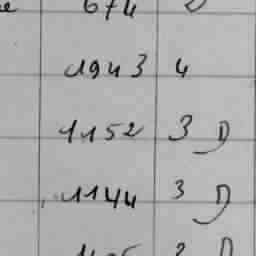 674
1943 4
1152 3 D
1144 3 D